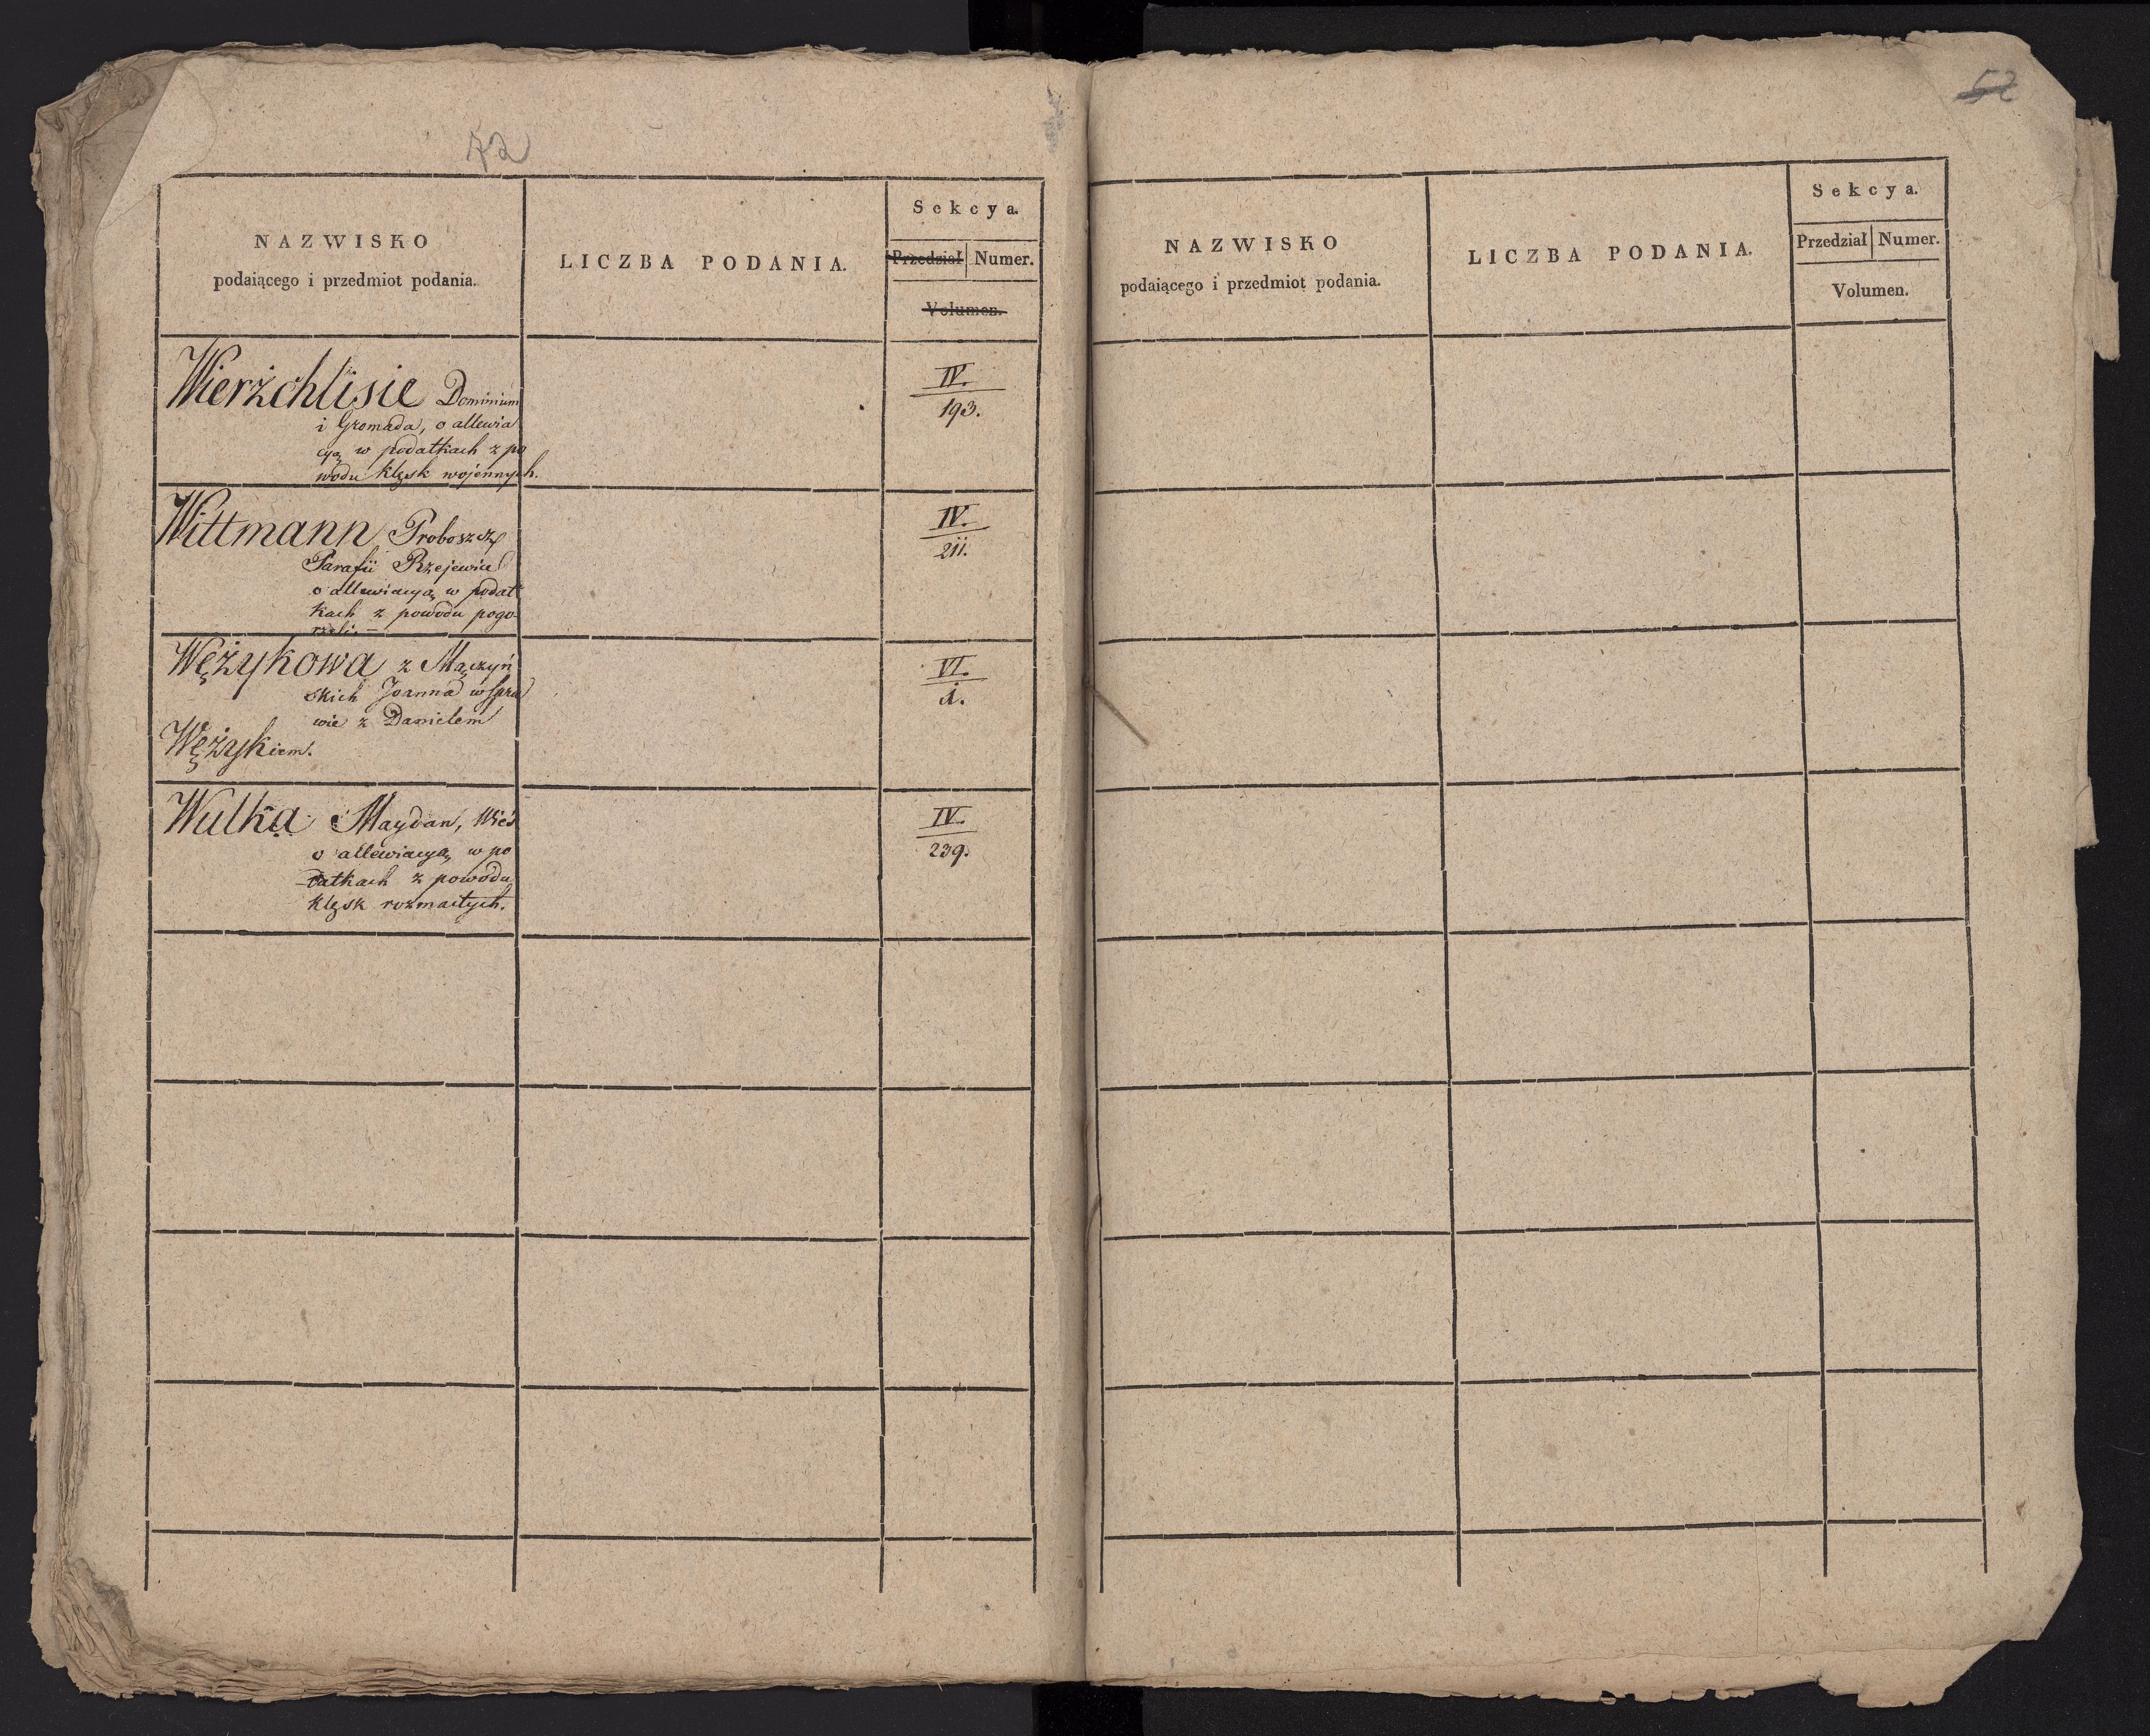 72
NAZWISKO
podaiącego i przedmiot podania.
LICZBA PODANIA.
Sekcya.
Przedział Numer.
Volumen.
Wierżchlisie Dominium
i Gromada, o allewia
cyą w podatkach z po
wodu klęsk wojennych.
IV.
193.
Wittmann Proboszcz
Parafii Rzejewice
o allewiacyą w podat
kach z powodu pogo
rzeli. –
IV.
211.
Wężykowa z Mączyń
skich Joanna w spra
wie z Danielem
Wężykiem.
VI.
1.
Wulka Maydan, Wieś
o allewiacyą w po
datkach z powodu
klęsk rozmaitych.
IV.
239.
52
NAZWISKO
podaiącego i przedmiot podania.
LICZBA PODANIA.
Sekcya.
Przedział Numer.
Volumen.